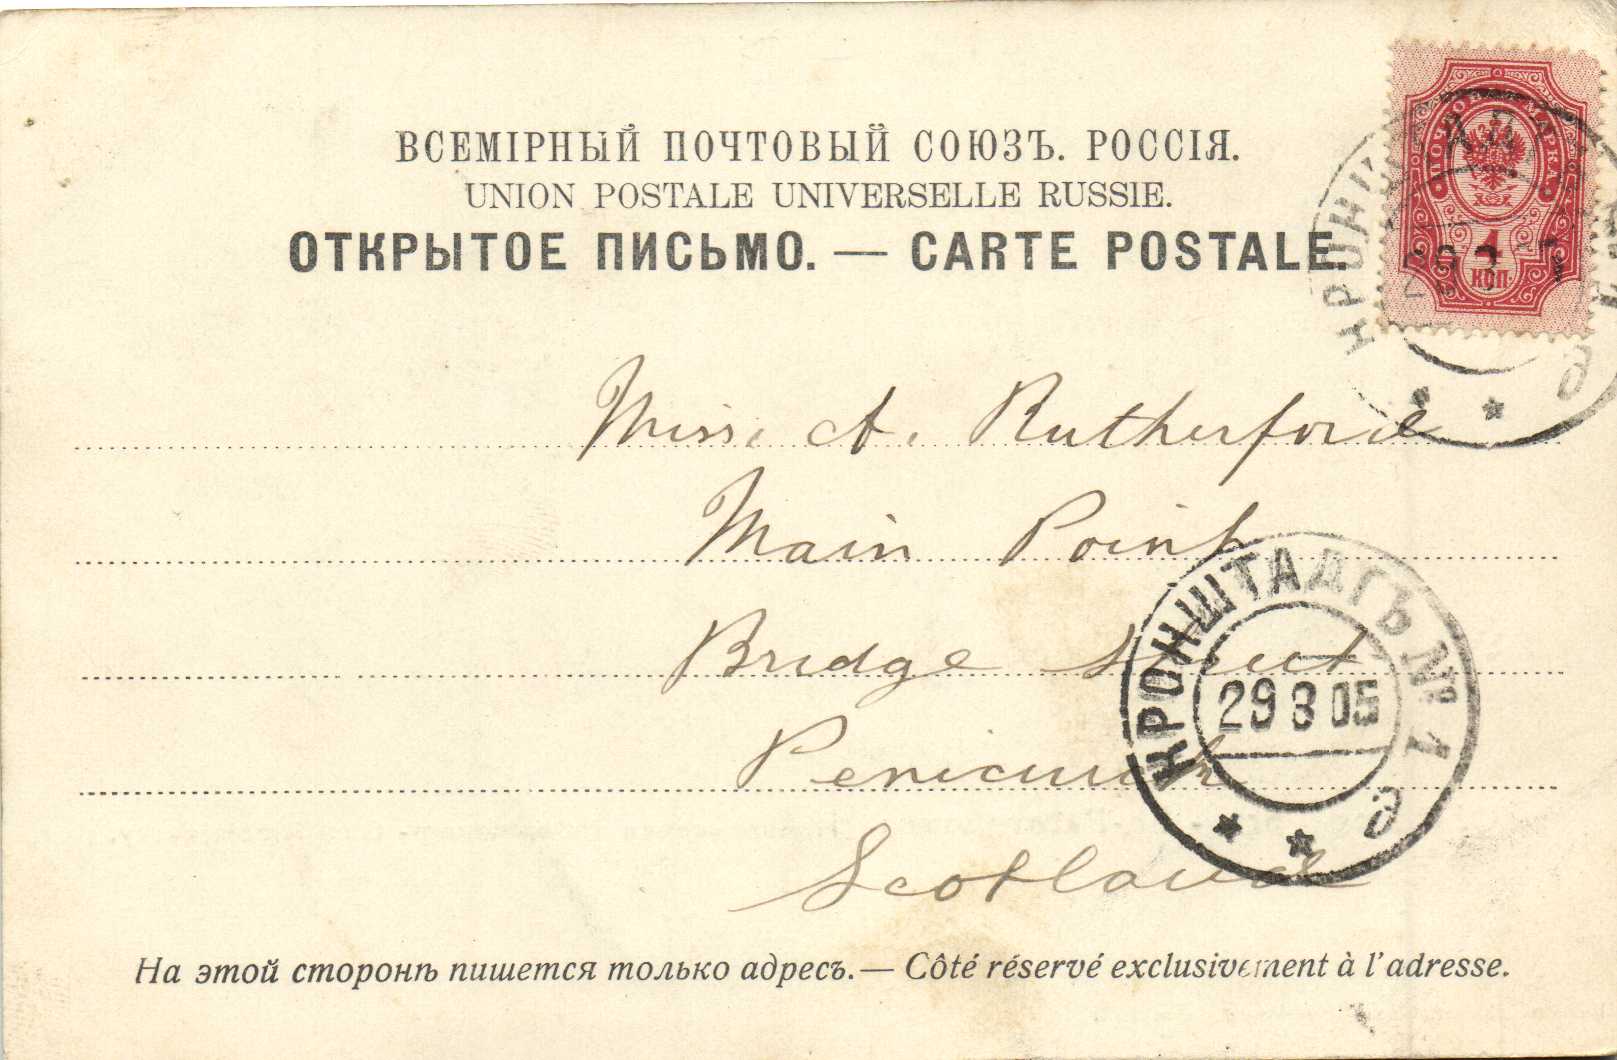 ВСЕМІРНЫЙ ПОЧТОВЫЙ СОЮЗЪ. РОССІЯ.
UNION POSTALE UNIVERSELLE RUSSIE.
ОТКРЫТОЕ ПИСЬМО. — CARTE POSTALE.
ПОЧТОВАЯ МАРКА
1
КОП.
Miss. A. Rutherford
Main Point
Bridge Street
Penicuick
Scotland
КРОНШТАДТЪ № 1
29 3 05
е
На этой сторонѣ пишется только адресъ. — Côté réservé exclusivement à l'adresse.